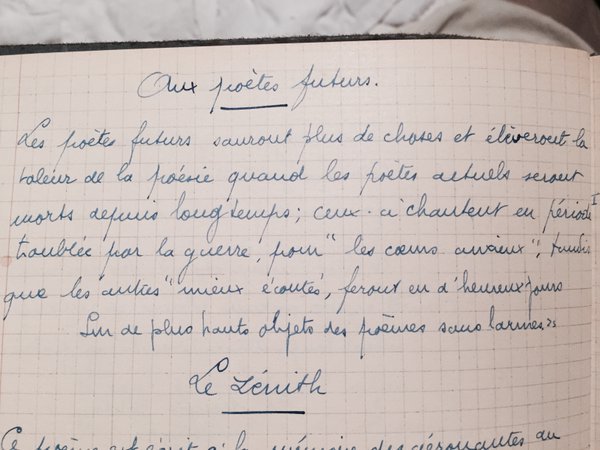 Aux poètes futurs.
Les poètes futurs sauront plus de choses et élèveront la
valeur de la poésie quand les poètes actuels seront
morts depuis longtemps; ceux-ci chantent en période
troublée par la guerre, pour "les cœurs anxieux", tandis
que les autres "mieux écoutés", feront en d'heureux jours
Sur de plus hauts objets des poèmes sans larmes."
Le Zénith
Ce poème est écrit à la mémoire des aéronautes du